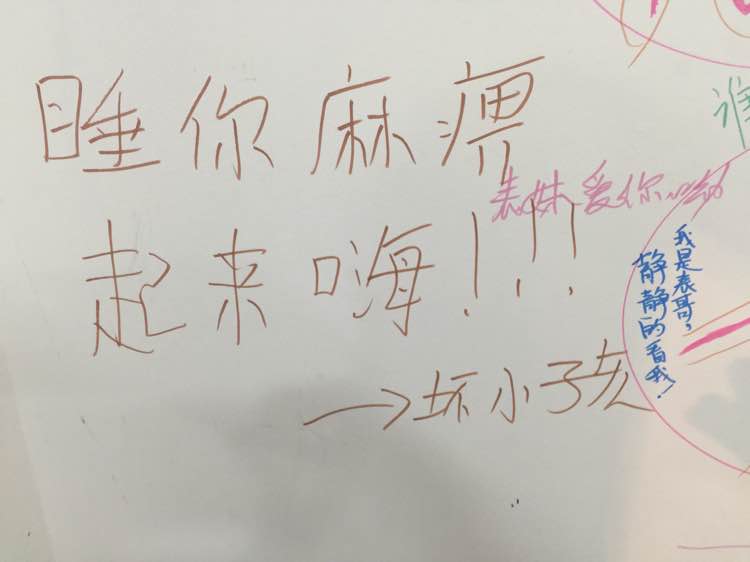 睡你麻痹
起来嗨!!!
→坏小孩
表妹爱你
我是表哥,
静静的看我!
谁